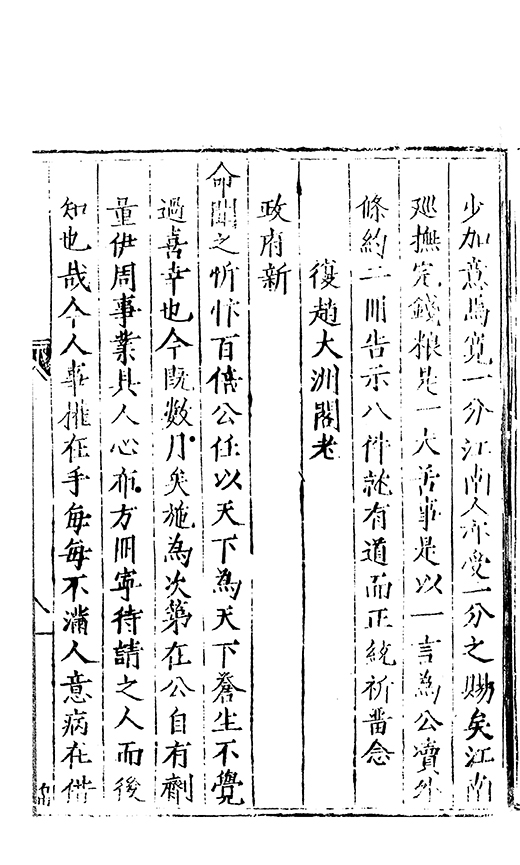 少加意焉寛一分江南人亦受一分之賜矣江南
廵撫完錢粮是一大善事是以一言為公凟外
條約二冊告示八件就有道而正統祈畱念
復趙大洲閣老
政府新
命聞之忻忭百倍公任以天下為天下蒼生不覺
過喜幸也今既數月矣施為次第在公自有劑
量伊周事業具人心布方冊寧待請之人而後
知也哉今人事權在手每每不滿人意病在借